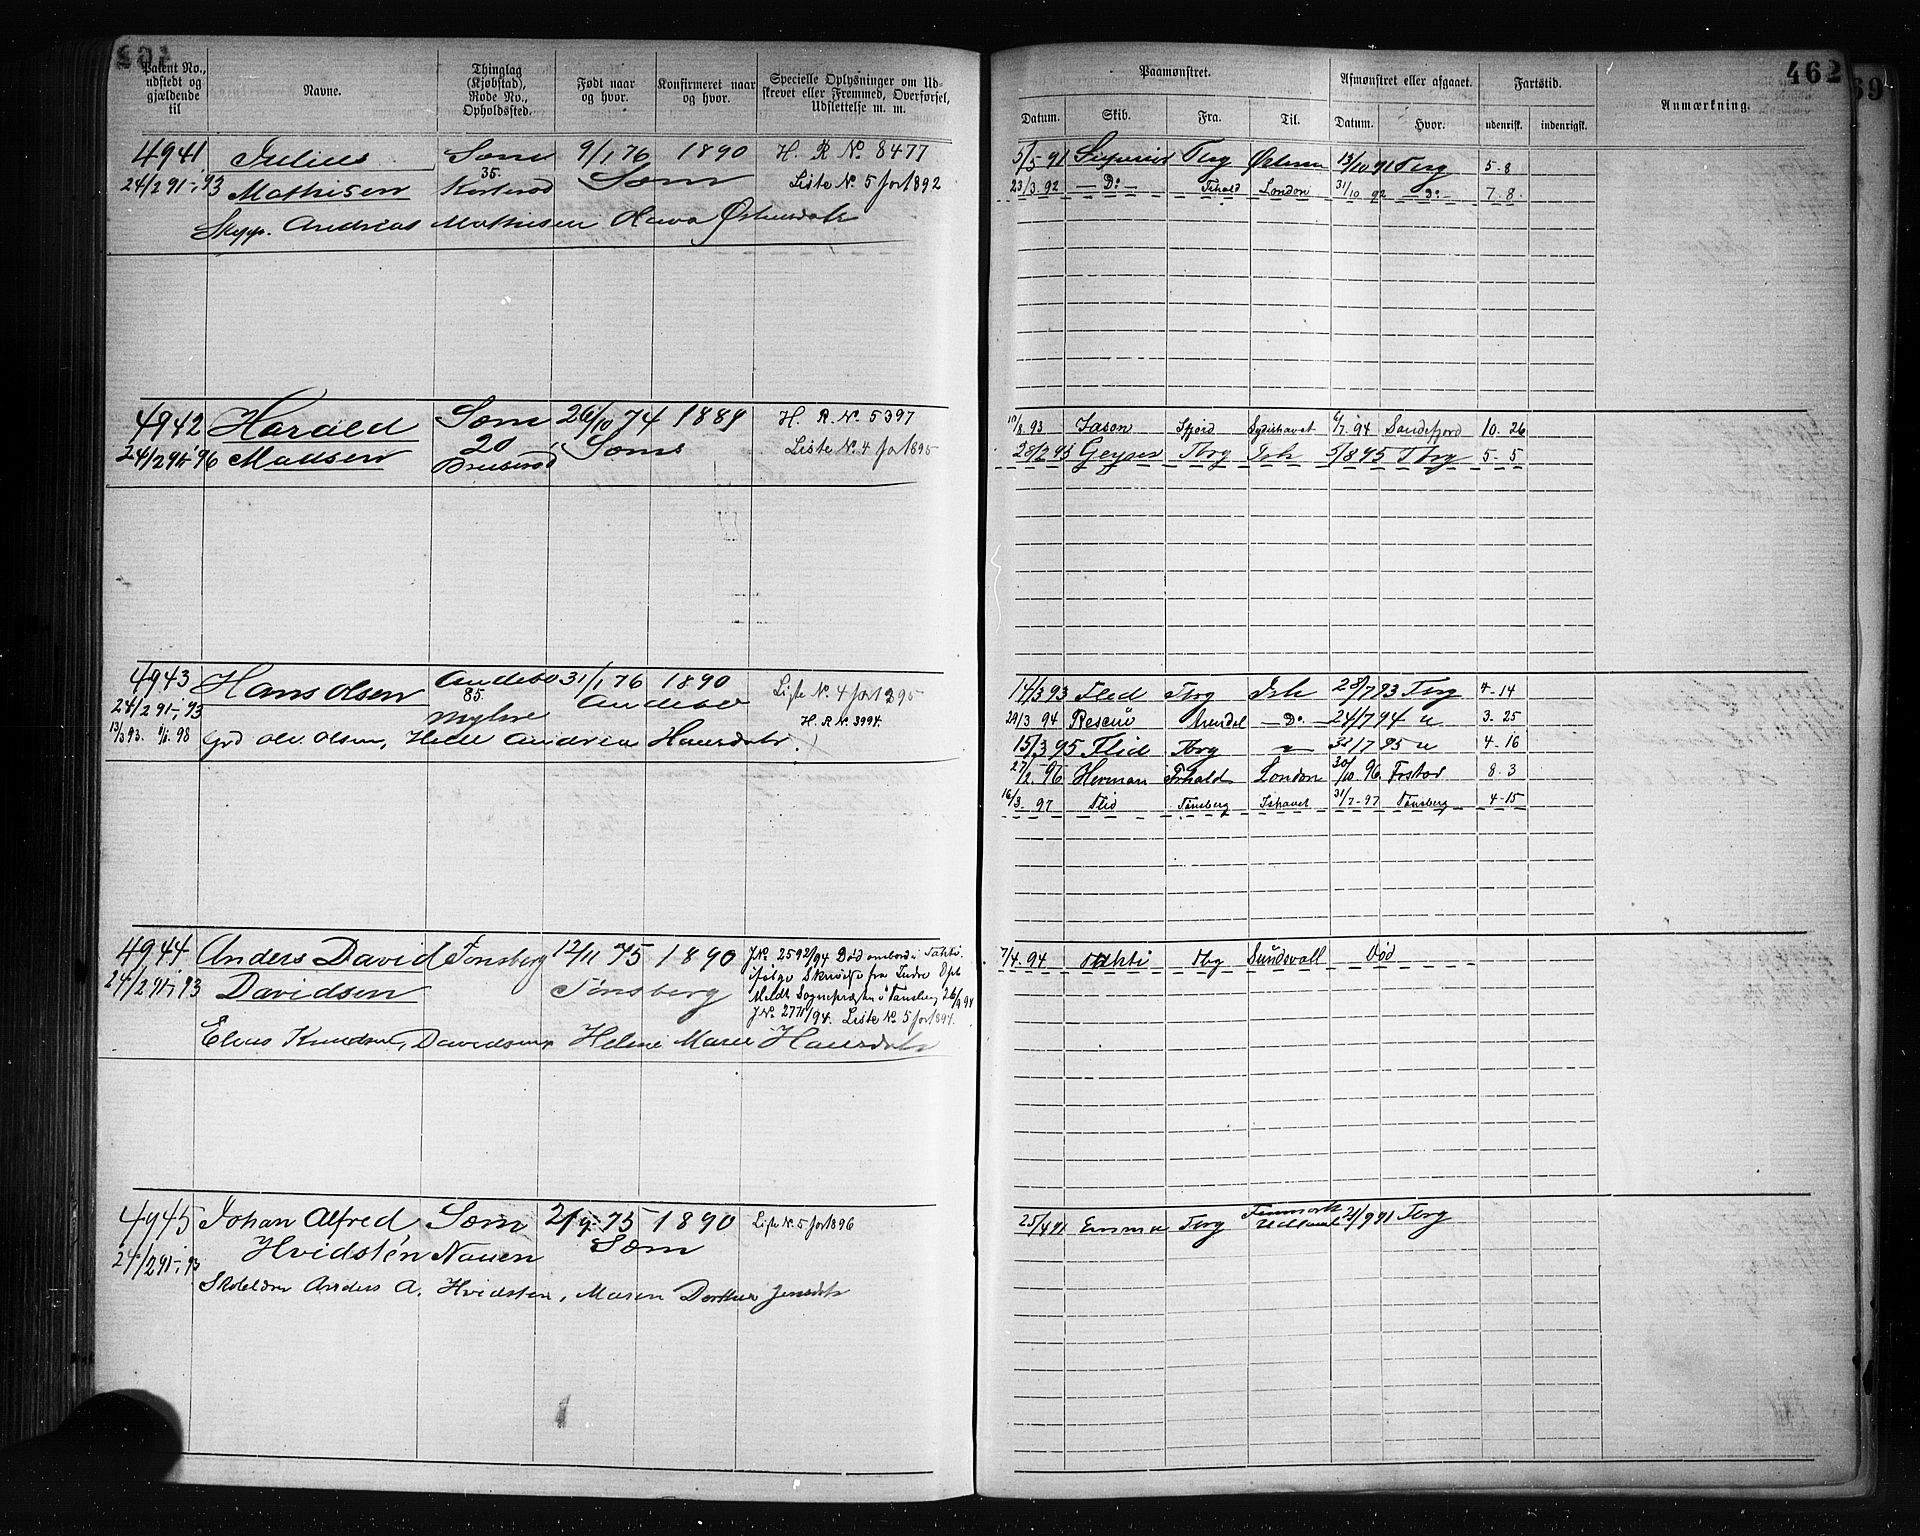 462
69
Patent No., udstedt og gjældende til
Navne.
Thinglag (Kjøbstad), Rode No., Opholdssted.
Født naar og hvor.
Konfirmeret naar og hvor.
Specielle Oplysninger om Udskrevet eller Fremmed, Overførsel, Udslettelse m. m.
Paamønstret.
Afmønstret eller afgaaet.
Fartstid.
Anmærkning.
Datum. Skib. Fra. Til. Datum. Hvor. udenrisk. indenrigsk.
4941 Julius Sem 9/1 76 1890 H. R. No. 8477
24/2 91 - 93 Mathisen 35. Sem Liste No. 5 for 1892
Skypp. Andreas Mathisen
5/5 91 Tbrg 13/10 91 Tbrg 5-8
23/3. 92 — Do — Frhald London 31/10 92 — Do — 7.8.
4942 Harald Sem 26/10 74 1889 H. R. No. 5397
24/2 91 - 96 Madsen 20 Sem Liste No. 4 for 1895
10/8. 93 Jason Sfjord Sydishavet 6/7. 94 Sandefjord 10. 26
28/2 95 Geyser Tbrg Ish 3/8 95 Tbrg 5-5
4943 Hans Olsen Andebo 31/1 76 1890 Liste No. 4 for 1895
24/2 91 -, 93 85. Andebo H. R. No. 3994.
13/3 93. 98 Ole Olsen, Andrea Hansdatr.
14/3 93 Flid Tbrg Ish 28/7 93 Tbrg 4-14
29/3. 94 Rescue Arendal — Do — 24/7 94 " 3. 25
15/3 95 Flid Tbrg " 95 " 4-16
27/2. 96 Herman Frhald London 30/10. 96 Frstad 8. 3
16/3. 97 Flid Tønsberg Ishavet 31/7-97 Tønsberg 4-15
4944 Anders David Tønsberg 12/11 75 1890 J.No. 2592/94 Død ombord i
24/2 91 -, 93 Davidsen Tønsberg
J.No. 94. Liste No. 5 for 1894.
Knudsen, Davidsen, Helene Marie Hansdatr
7/4. 94 Tbg Sundsvall Død
4945 Johan Alfred Sem 2/9. 75 1890 Liste No. 5 for 1896
24/2 91 -, 93 Hvidstén Nauen Sem
Anders A. Hvidsten, Maren Dorthea Jensdatr
25/4 91 Emma Tbrg 21/9 91 Tbrg